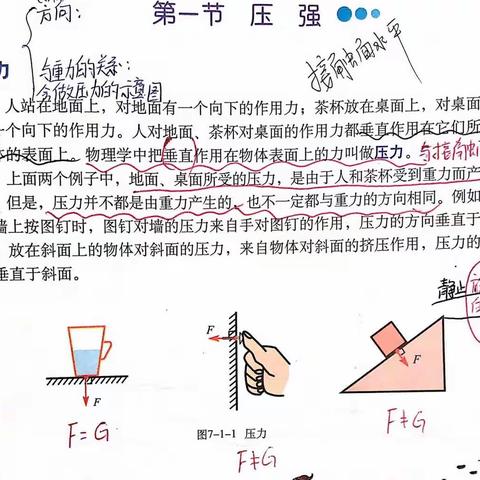 方向：
第一节 压 强
与重力的关系：
会做压力的示意图
接触面水平
力
人站在地面上，对地面有一个向下的作用力；茶杯放在桌面上，对桌面
一个向下的作用力。人对地面、茶杯对桌面的作用力都垂直作用在它们所
的表面上。物理学中把垂直作用在物体表面上的力叫做压力。与接触
上面两个例子中，地面、桌面所受的压力，是由于人和茶杯受到重力而产
但是，压力并不都是由重力产生的，也不一定都与重力的方向相同。例如
墙上按图钉时，图钉对墙的压力来自手对图钉的作用，压力的方向垂直于
放在斜面上的物体对斜面的压力，来自物体对斜面的挤压作用，压力的
垂直于斜面。
静止
F
F
F
F=G
图7-1-1 压力
F≠G
F≠G